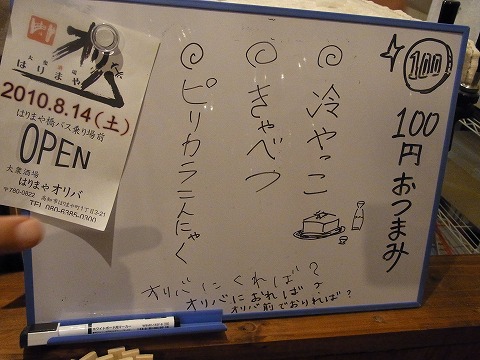 100
100円おつまみ
冷やっこ
きゃべつ
ピリカラこんにゃく
オリバにくれば?
オリバにおれば?
オリバ前でおりれば?
オリバ
大衆酒場
はりまや
2010.8.14(土)
はりまや橋バス乗り場前
OPEN
大衆酒場
はりまや オリバ
〒780-0822 高知市はりまや町1丁目2-21
TEL 080-6385-0300